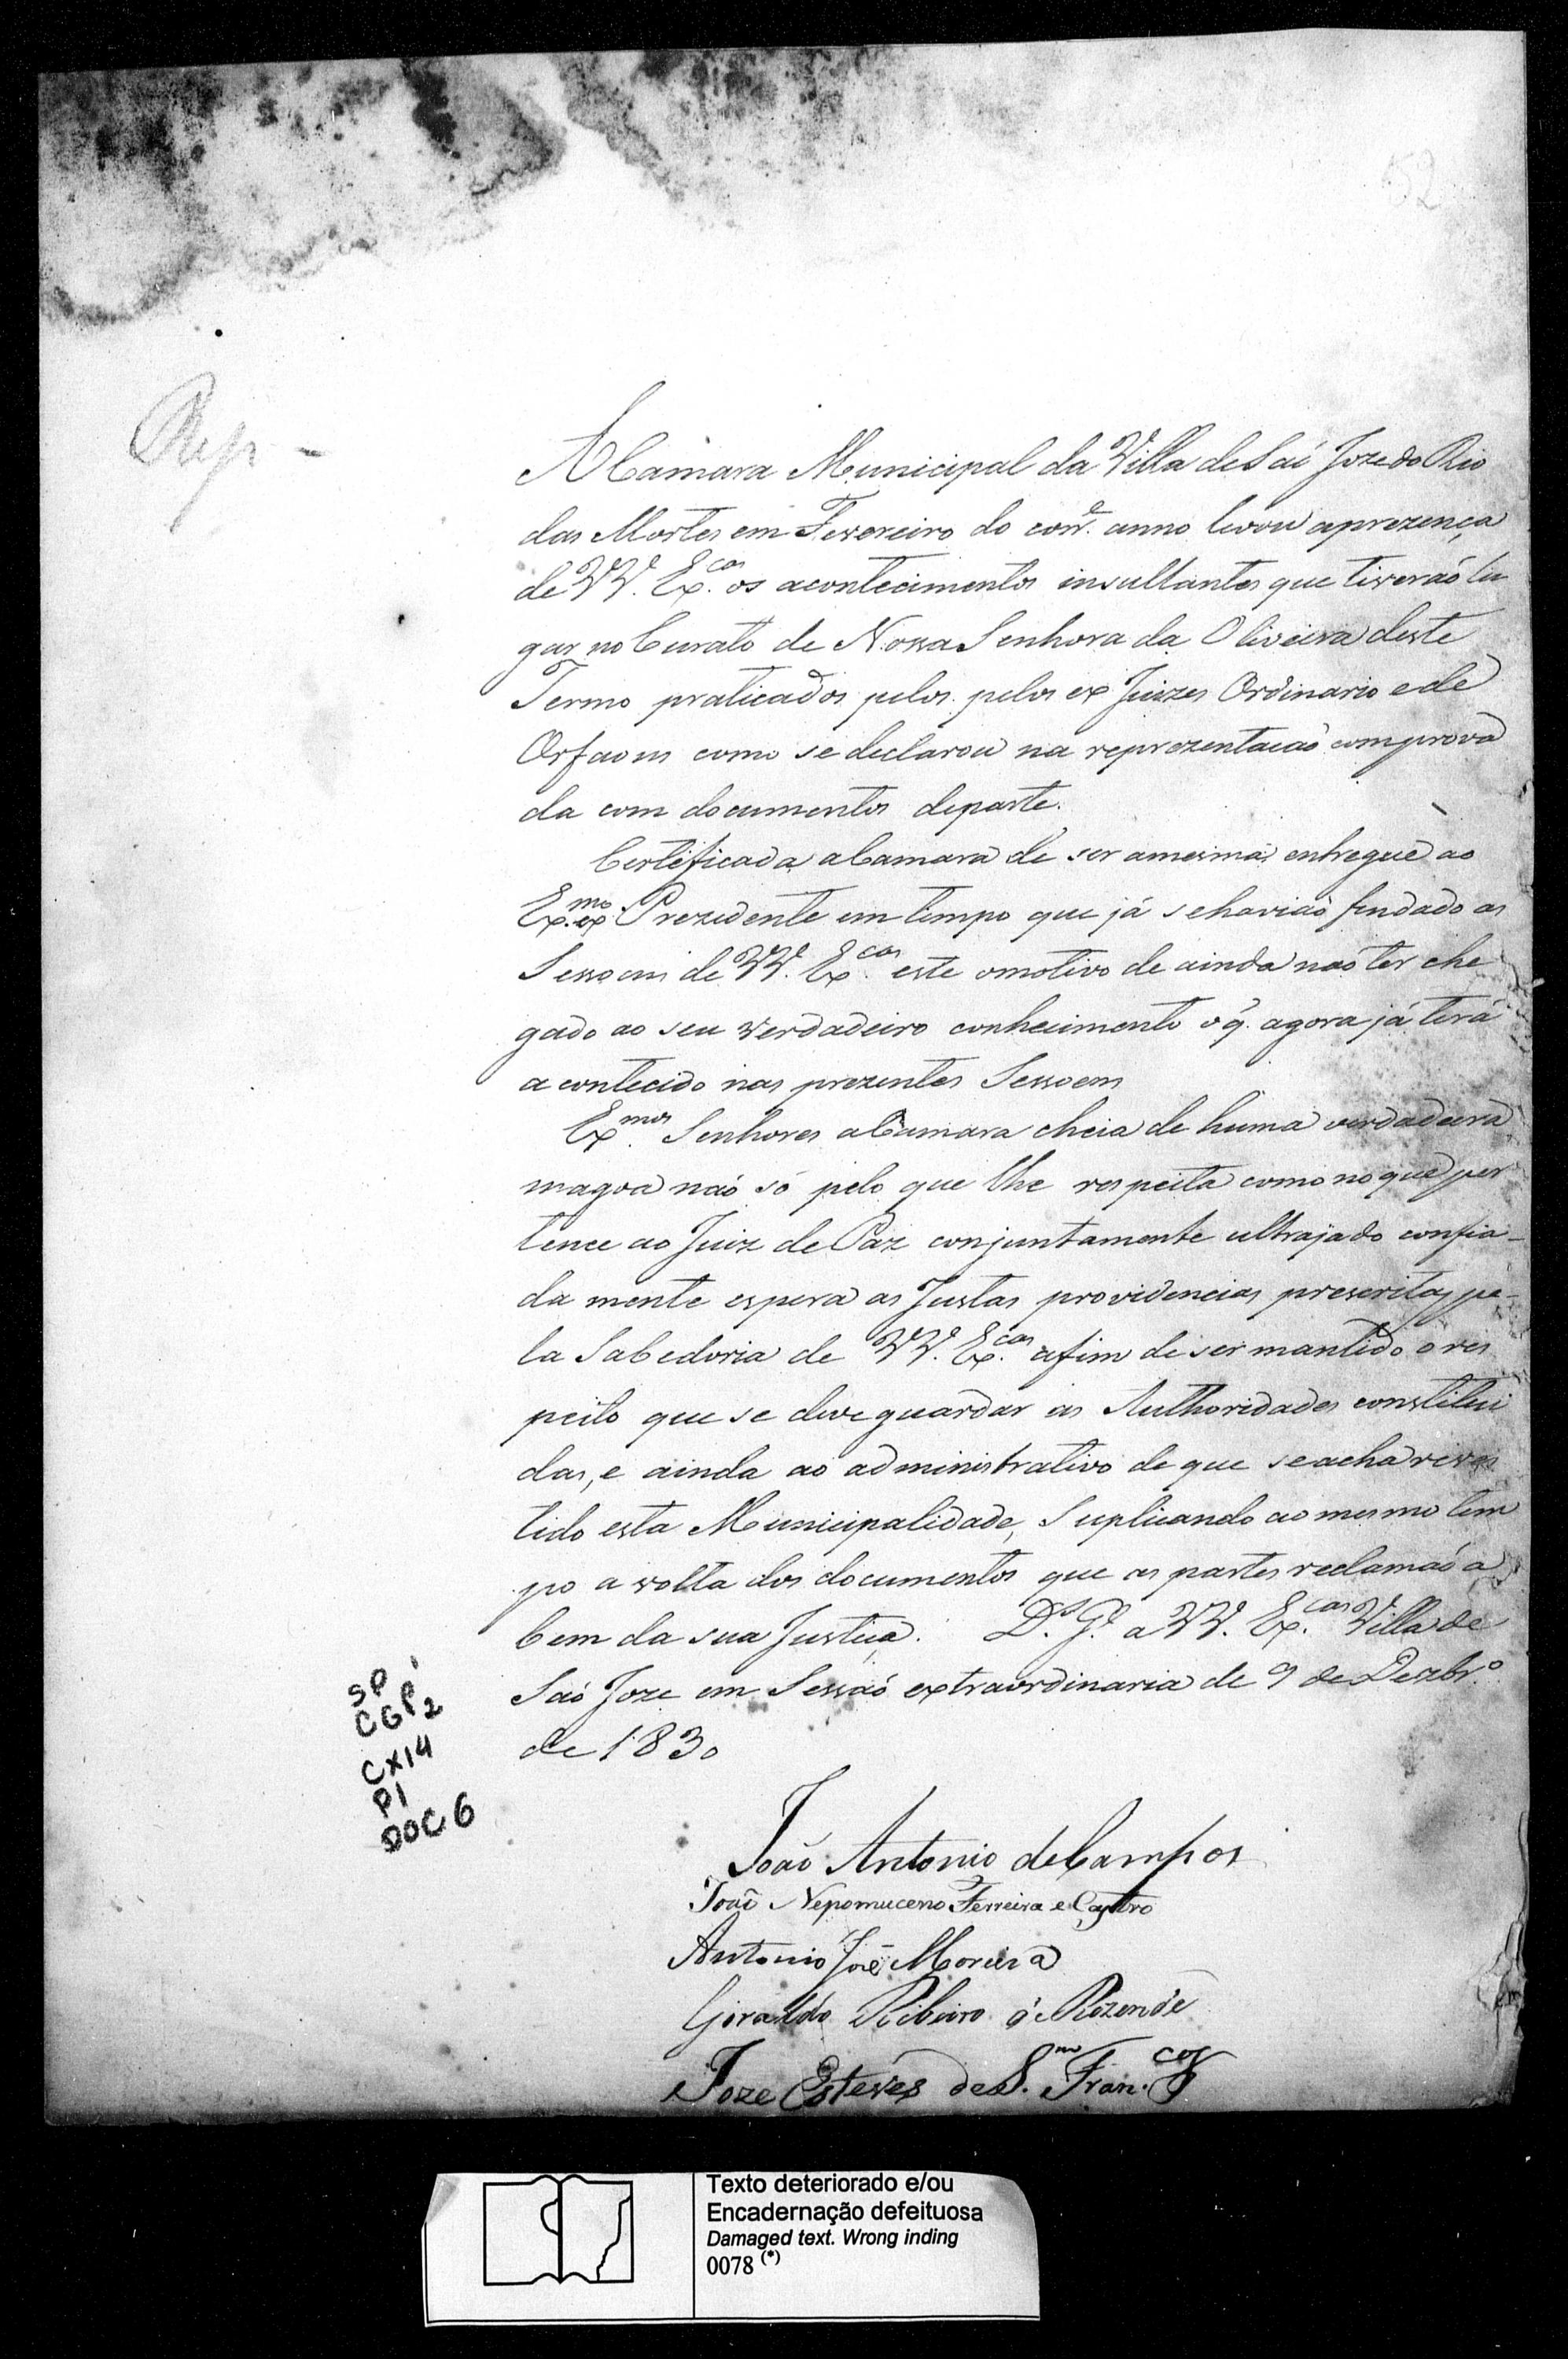 52
Rep -
A Camara Municipal da Villa de Saó Joze do Rio
das Mortes em Fevereiro do corr.e anno levou aprezença
de VV. Ex.cas os acontecimentos insultantes que tiveraó lu
gar no Curato de Nossa Senhora da Oliveira deste
Termo praticados pelos pelos ex Juizes Ordinario e de
Orfaons como se declarou na reprezentacaó comprova
da com documentos departe.
Certificada a Camara de ser amesma entregue ao
Ex.mo ex Prezidente em tempo que já sehaviaó findado as
Sessoens de VV. Ex.cas este omotivo de ainda naó ter che
gado ao seu verdadeiro conhecimento oq. agora já terá
acontecido nas prezentes Sessoens
Ex.mos Senhores a Camara cheia de huma verdadeira
magoa naó só pelo que lhe respeita como no que per
tence ao Juiz de Paz conjuntamente ultrajado confia-
da mente espera as Justas providencias prescritas pe-
la Sabedoria de VV. Ex.cas afim de ser mantido o res
peito que se deve guardar as Authoridades constitui
das, e ainda ao administrativo de que seacha reves
tido esta Municipalidade, Suplicando ao mesmo tem
po a volta dos documentos que as partes reclamaó a
bem da sua Justiça. D.s G.e a VV. Ex.cas Villa de
Saó Joze em Sessaó extraordinaria de 9 de Dezbr.o
de 1830
SP
CGP2
CX14
P1
DOC 6
Joaõ Antonio de Campos
Joaõ Nepomuceno Ferreira e Castro
Antonio José Moreira
Geraldo Ribeiro d' Rezende
Joze Esteves de S.m Fran.co
Texto deteriorado e/ou
Encadernação defeituosa
Damaged text. Wrong inding
0078 (*)